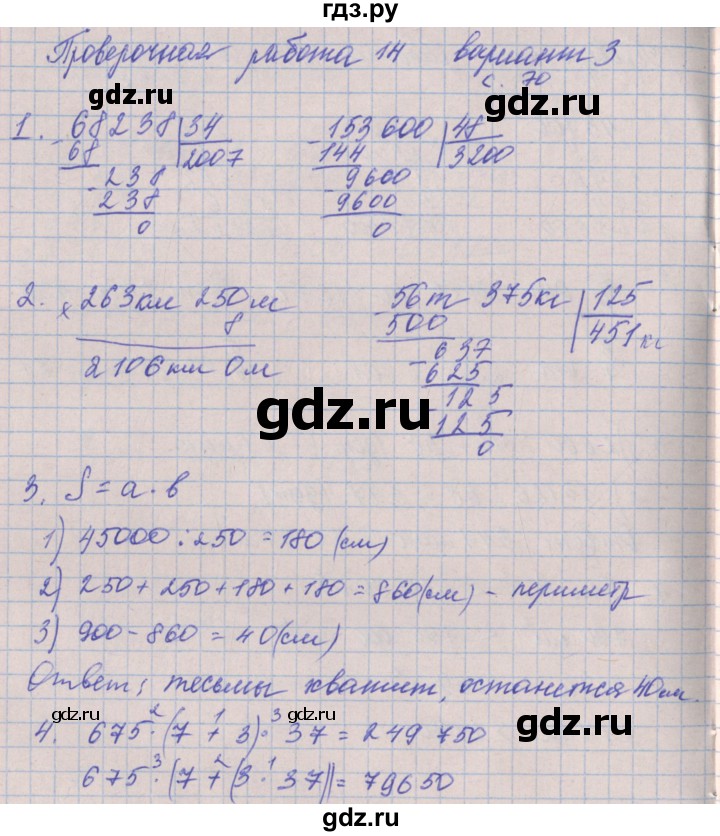 гдз.ру
Проверочная работа 14 вариант 3
с. 70
gdz.ru gdz.ru
1. - 68238 | 34 - 153600 | 48
68 2007 144 3200
- 238 - 9600
238 9600
0 0
2. × 263км 250м - 56т 375кг | 125
8 500 451кг
2106км 0м - 637
625
125
125
0
gdz.ru
3. S = a · b
1) 45000 : 250 = 180 (см)
2) 250 + 250 + 180 + 180 = 860 (см) - периметр
3) 900 - 860 = 40 (см)
Ответ: тесьмы хватит, останется 40см.
gdz.ru gdz.ru
4. 675 ·2 (7 +1 3) ·3 37 = 249 750
675 ·3 (7 +2 (3 ·1 37)) = 79650
gdz.ru